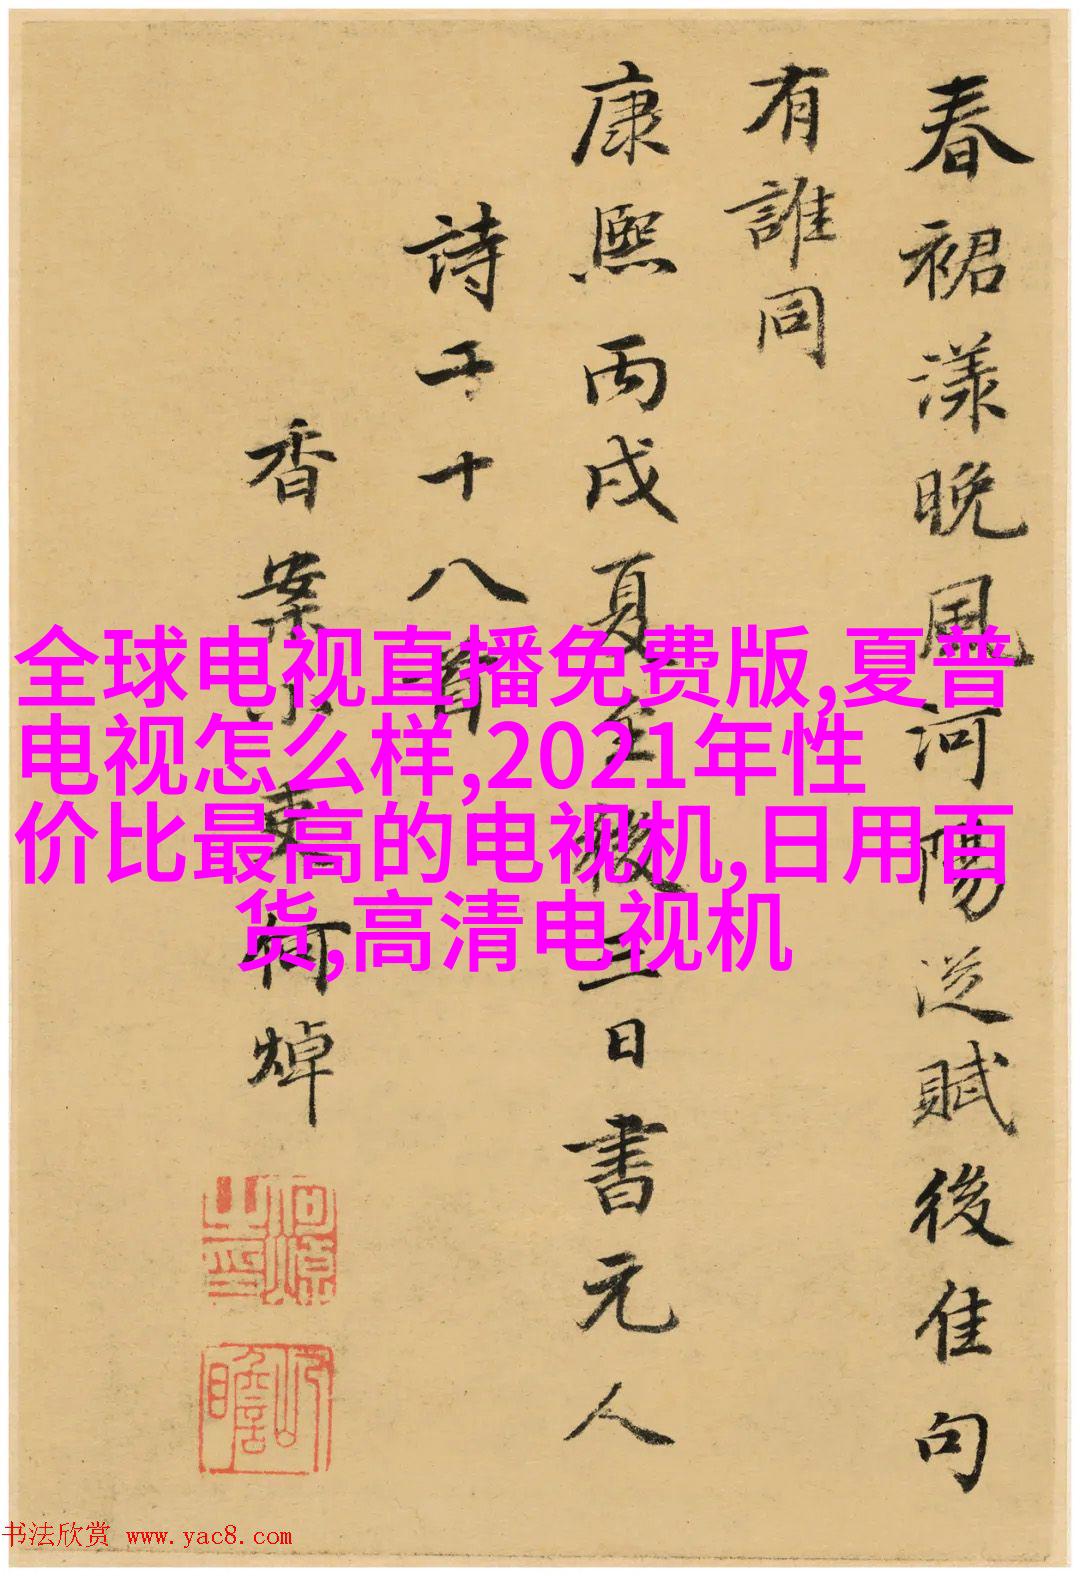 春裙漾晚風河陽從賦後佳句
有誰同
康熙丙戌夏至後三日書元人
詩二十八首
香案小吏何焯
全球电视直播免费版,夏普
电视怎么样,2021年性
价比最高的电视机,日用百
货,高清电视机
书法欣赏 www.yac8.com